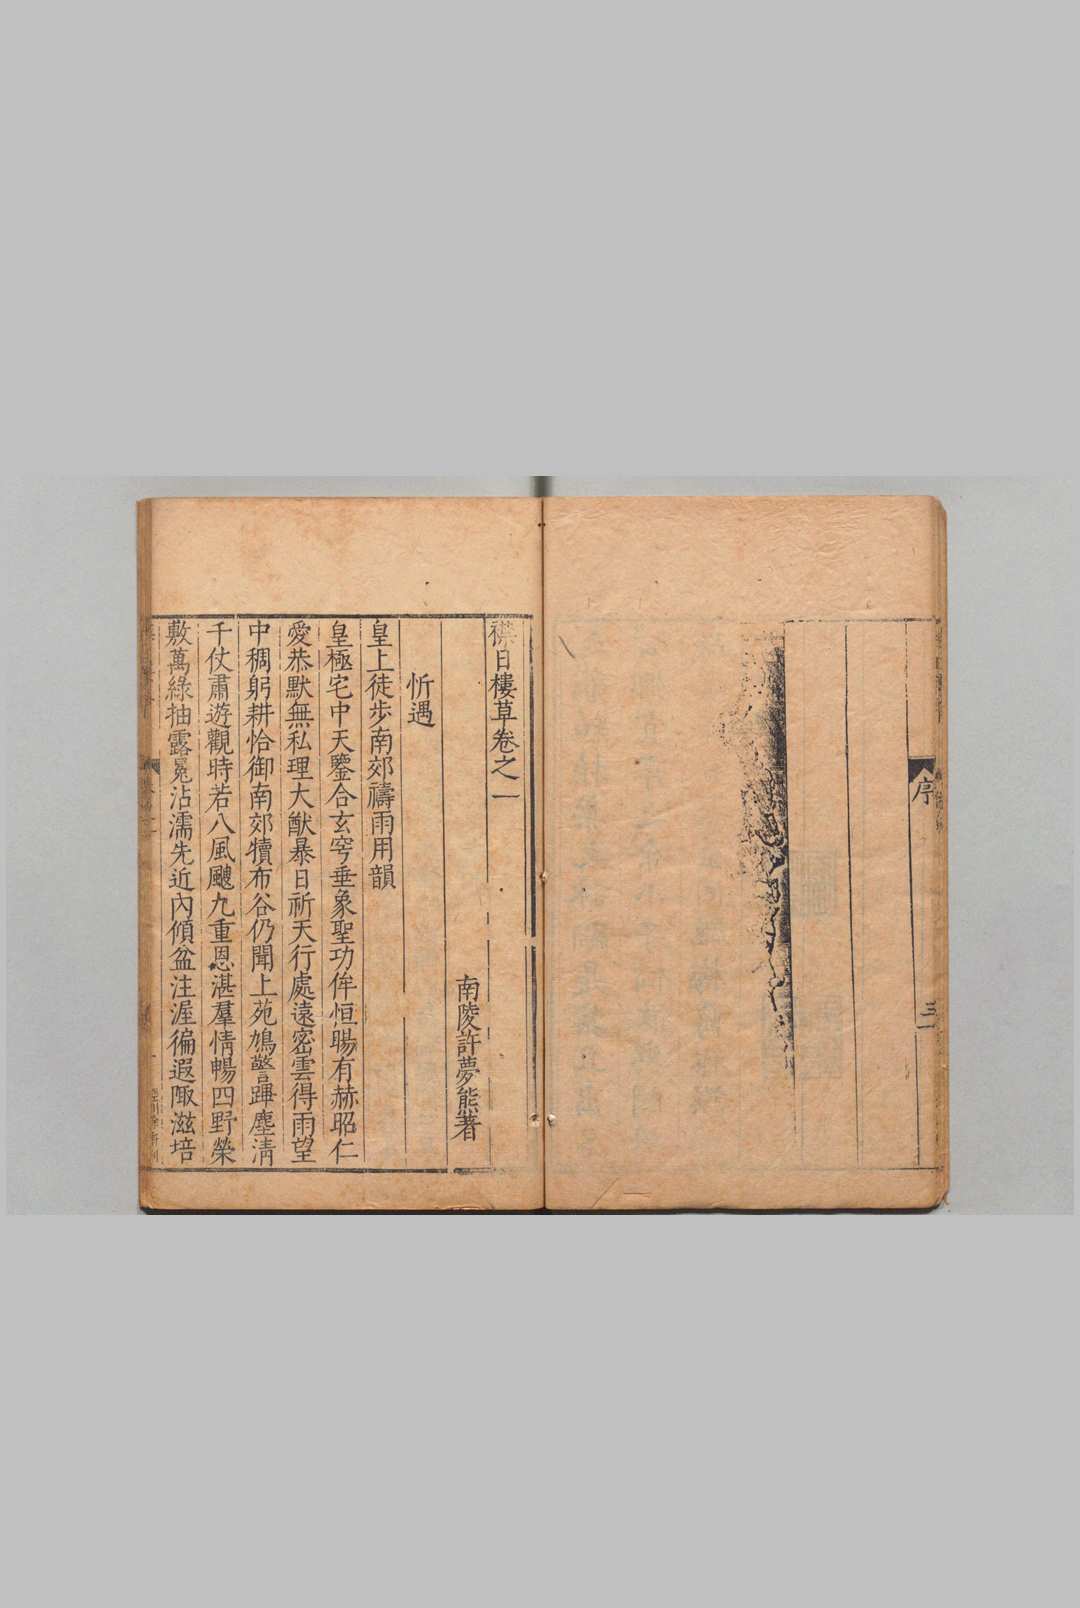 序
三
襍日樓草卷之一
南陵許夢熊著
忻遇
皇上徒步南郊禱雨用韻
皇極宅中天鑒合玄穹垂象聖功侔恒暘有赫昭仁
愛恭默無私理大猷暴日祈天行處遠密雲得雨望
中稠躬耕恰御南郊犢布谷仍聞上苑鳩警蹕塵清
千仗肅遊觀時若八風飂九重恩湛羣情暢四野榮
敷萬綠抽露冕沾濡先近內傾盆注渥徧遐陬滋培